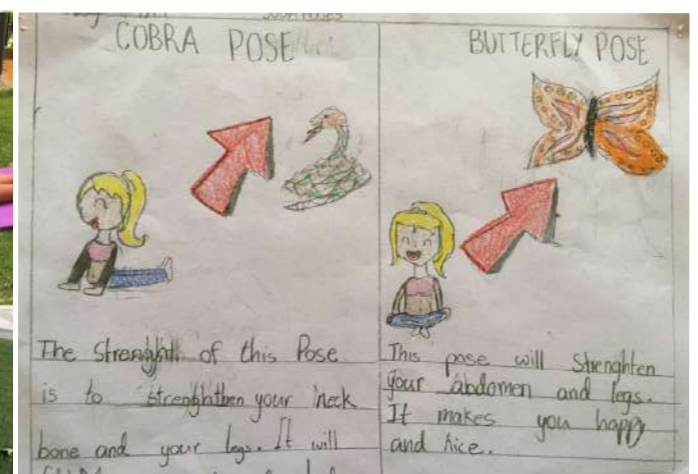 COBRA POSE
The Strenght of this Pose
is to strenghthen your neck
bone and your legs. It will
BUTTERFLY POSE
This pose will Strenghten
your abdomen and legs.
It makes you happy
and nice.